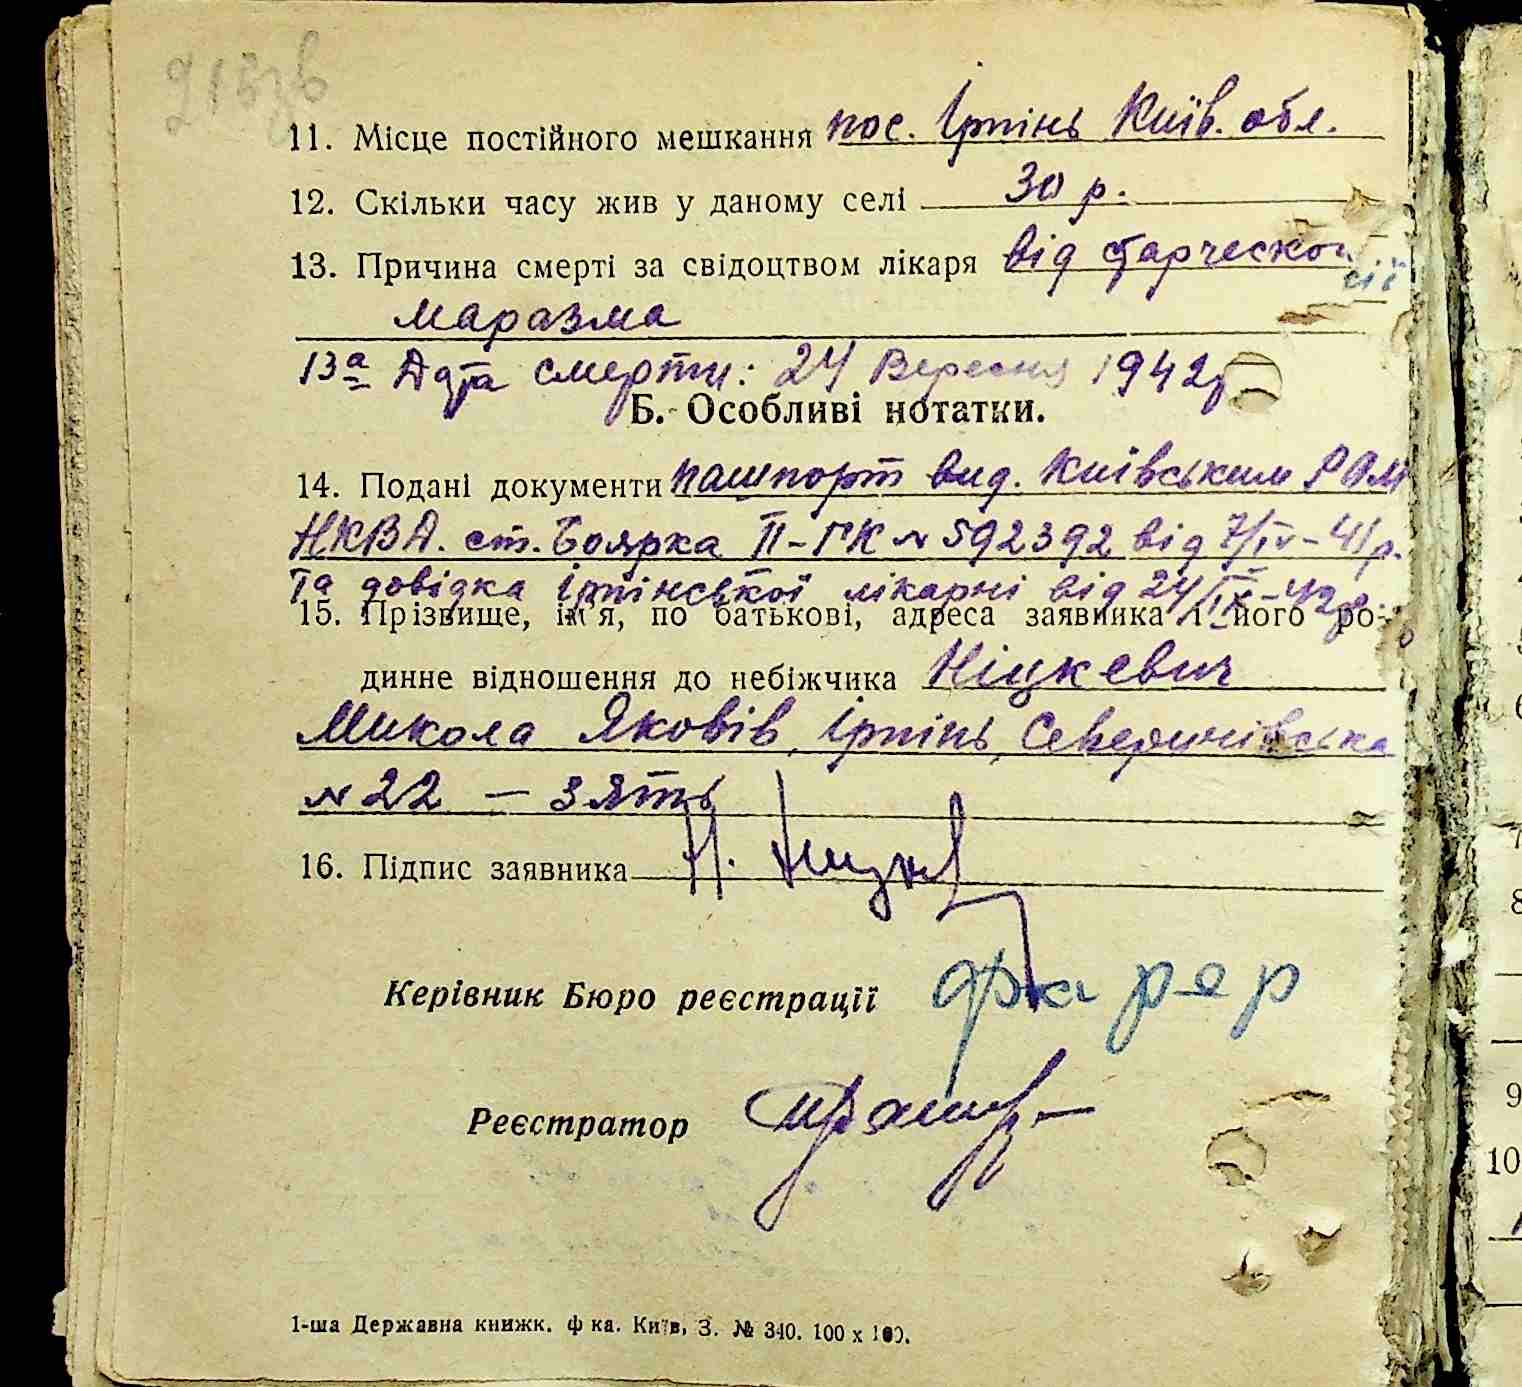 215зв
11. Місце постійного мешкання пос. Ірпінь Київ. обл.
12. Скільки часу жив у даному селі 30 р.
13. Причина смерті за свідоцтвом лікаря від старческої
маразма
13а Дата смерти: 24 Вересня 1942р
Б. Особливі нотатки.
14. Подані документи пашпорт вид. Київським РОМ
НКВД. ст. Боярка II-ГК № 592392 від 7/IV-41р.
та довідка Ірпінської лікарні від 24/IX-42р.
15. Прізвище, ім'я, по батькові, адреса заявника і його ро-
динне відношення до небіжчика Ніцкевич
Микола Яковів, Ірпінь, Северинівська
№ 22 — зять
16. Підпис заявника
Керівник Бюро реєстрації
Реєстратор
1-ша Державна книжк. ф ка. Київ, З. № 340. 100 х 100.
7
8
9
10